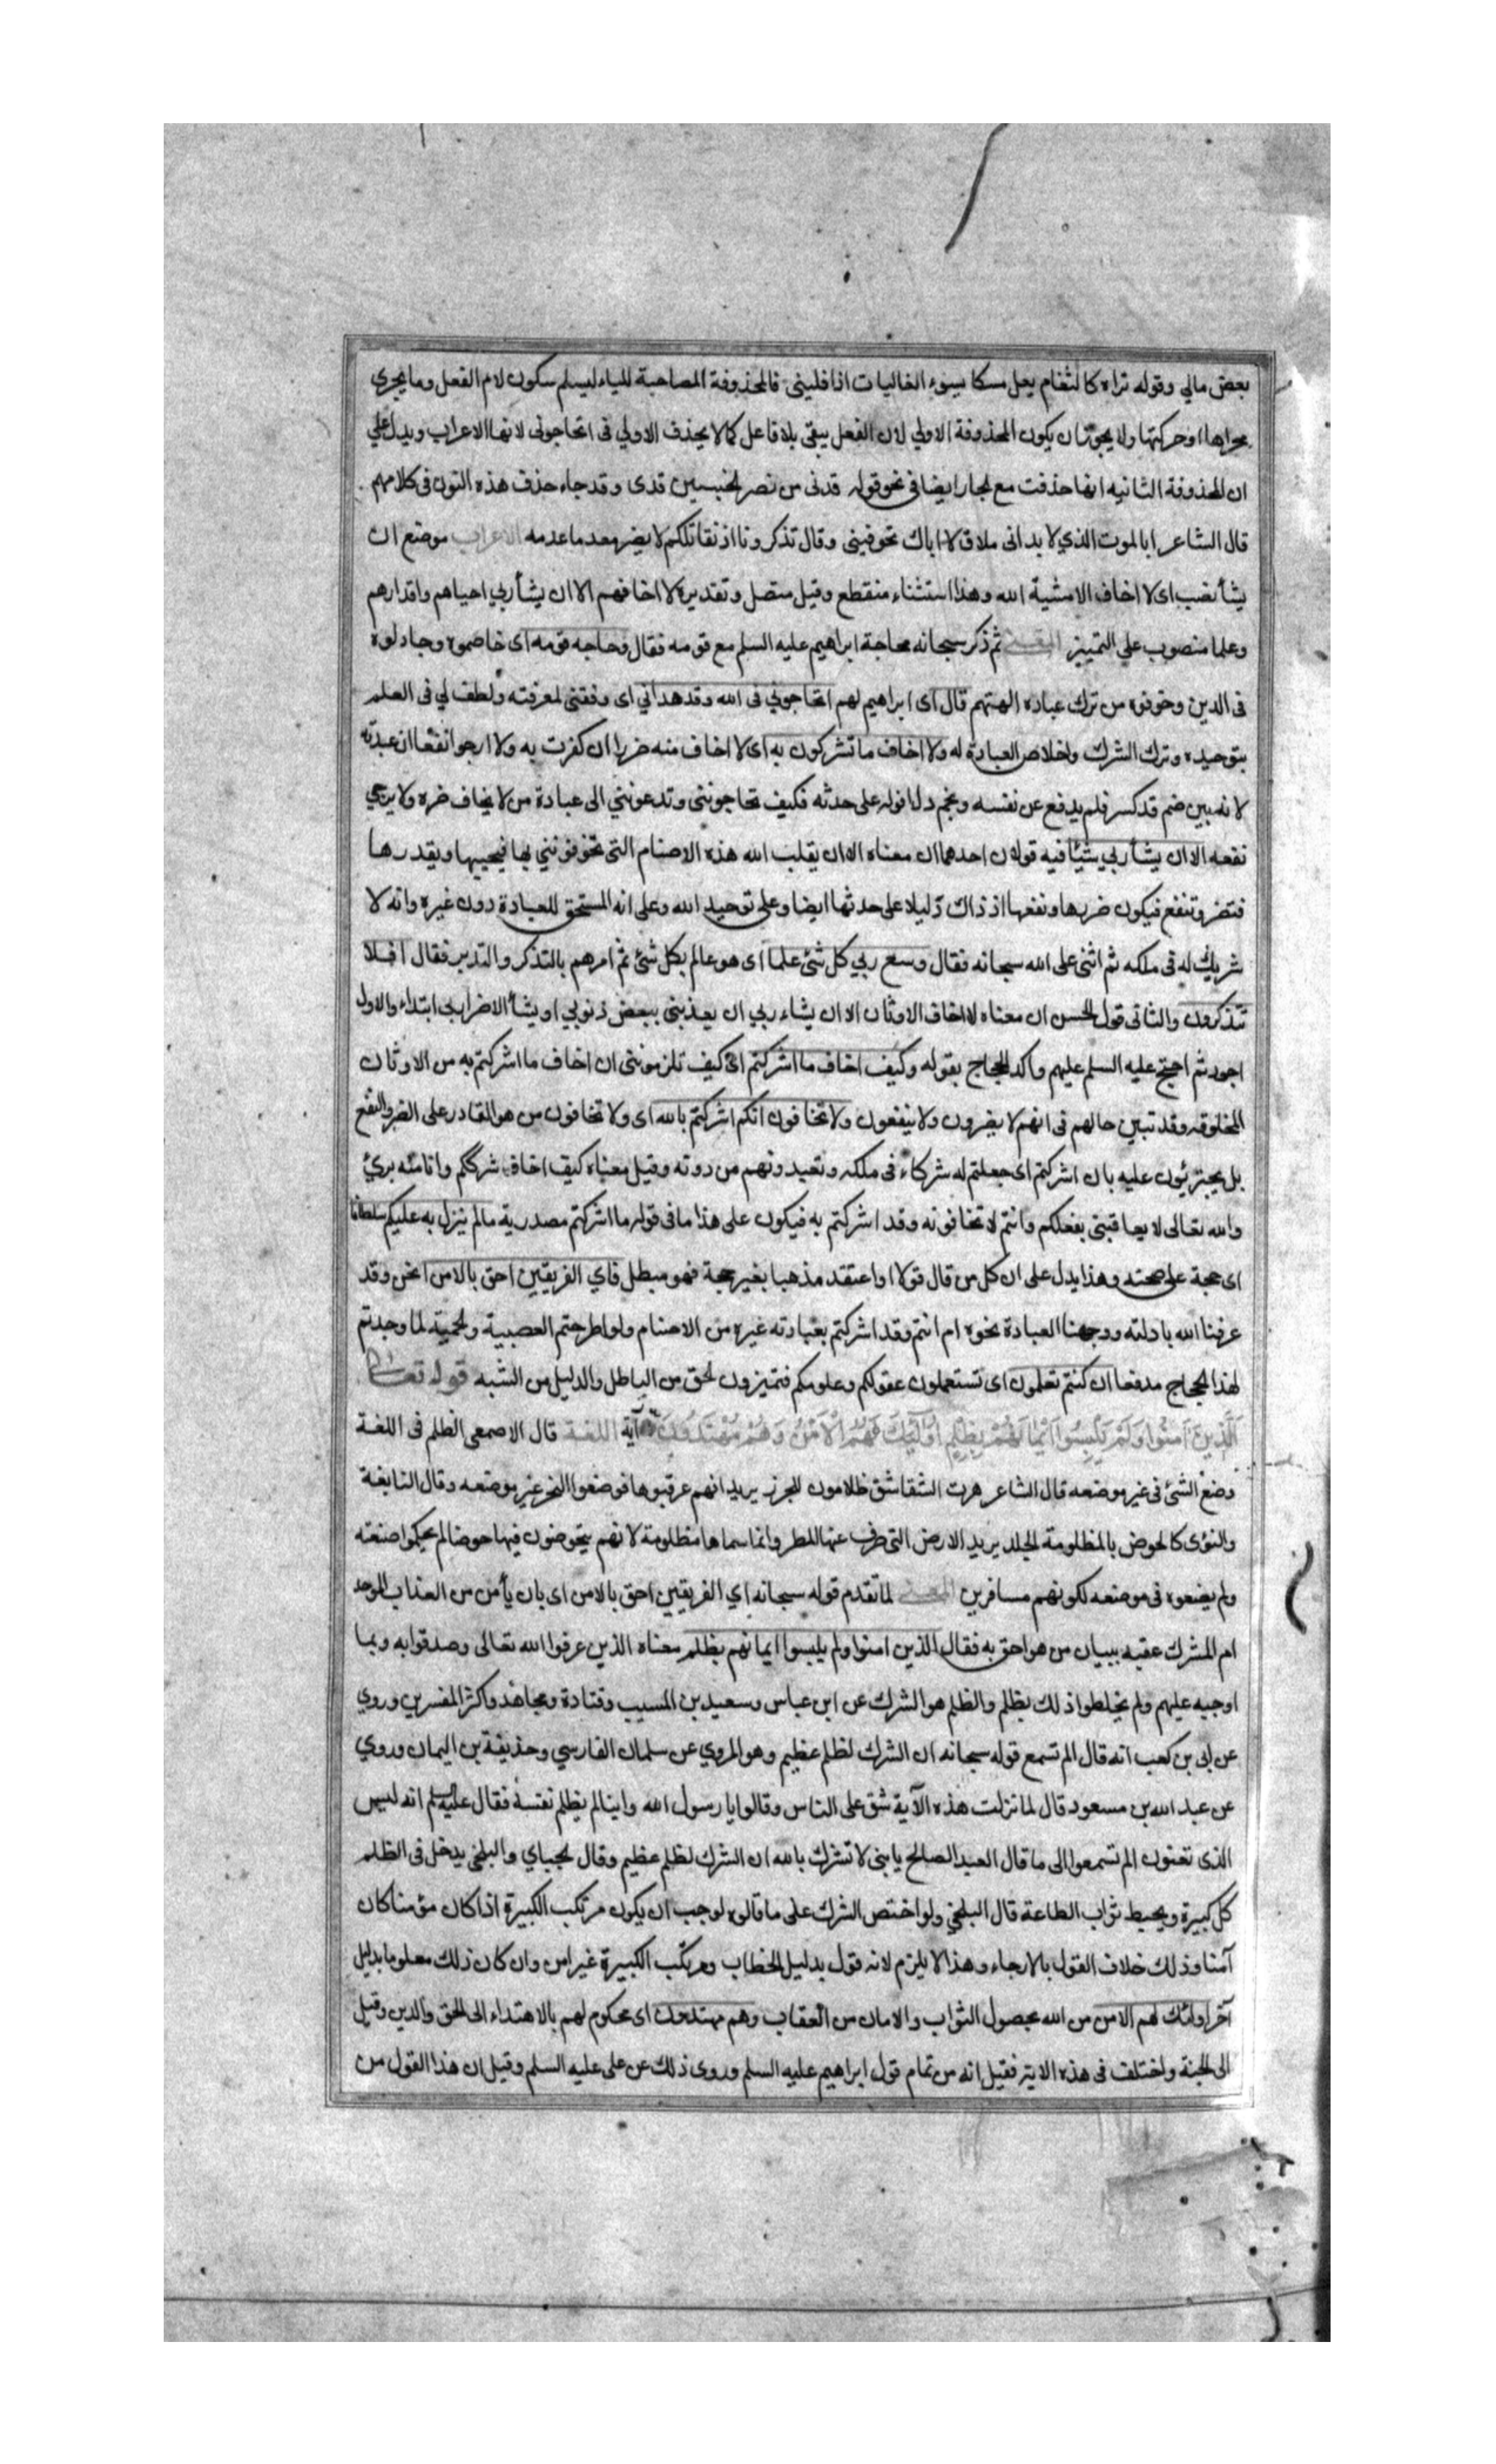 بعض مالي وقوله تراه كالثغام يعل مسكا يسوء الفاليات اذا فليني فالمحذوفة المصاحبة للياء ليسلم سكون لام الفعل وما يجري
مجراها او حركتها ولا يجوز ان يكون المحذوفة الاولي لان الفعل يبقى بلا فاعل كما لا يحذف الاولي فى اتحاجوني لانها الاعراب ويدل علي
ان المحذوفة الثانيه انها حذفت مع الجار ايضا فى نحو قوله قدنى من نصر الخبيبين قدى وقد جاء حذف هذه النون فى كلامهم
قال الشاعر ابالموت الذي لا بد انى ملاق لا اباك تخوفينى وقال تذكرونا اذ نقاتلكم لا يضر معدما عدمه الاعراب موضع ان
يشأ نصب اى لا اخاف الا مشية الله وهذا استثناء منقطع وقيل متصل وتقديره لا اخافهم الا ان يشأ ربي احياهم واقدارهم
وعلما منصوب على التمييز المعنى ثم ذكر سبحانه محاجة ابراهيم عليه السلم مع قومه فقال وحاجه قومه اى خاصموه وجادلوه
فى الدين وخوفوه من ترك عباده الهتهم قال اى ابراهيم لهم اتحاجوني فى الله وقد هداني اى وفقنى لمعرفته ولطف لي فى العلم
بتوحيده وترك الشرك واخلاص العبادة له ولا اخاف ما تشركون به اى لا اخاف منه ضررا ان كفرت به ولا ارجوا نفعا ان عبدته
لانه بين صنم قد كسر فلم يدفع عن نفسه ونجم دل افوله على حدثه فكيف تحاجوننى وتدعونني الى عبادة من لا يخاف ضره ولا يرجي
نفعه الا ان يشأ ربي شيئا فيه قولان احدهما ان معناه الا ان يقلب الله هذه الاصنام التى تخوفونني بها فيحييها ويقدرها
فتضر وتنفع فيكون ضررها ونفعها اذ ذاك دليلا على حدثها ايضا وعلى توحيد الله وعلى انه المستحق للعبادة دون غيره وانه لا
شريك له فى ملكه ثم اثنى على الله سبحانه فقال وسع ربي كل شئ علما اى هو عالم بكل شئ ثم امرهم بالتذكر والتدبر فقال افلا
تتذكرون والثانى قول الحسن ان معناه لا اخاف الاوثان الا ان يشاء ربي ان يعذبنى ببعض ذنوبي او يشأ الاضرار بى ابتداء والاول
اجود ثم احتج عليه السلم عليهم واكد الحجاج بقوله وكيف اخاف ما اشركتم اى كيف تلزمونني ان اخاف ما اشركتم به من الاوثان
المخلوقه وقد تبين حالهم فى انهم لا يضرون ولا ينفعون ولا تخافون انكم اشركتم بالله اى ولا تخافون من هو القادر على الضر والنفع
بل يجترئون عليه بان اشركتم اى جعلتم له شركاء فى ملكه وتعبدونهم من دونه وقيل معناه كيف اخاف شرككم وانا منه برئ
والله تعالى لا يعاقبنى بفعلكم وانتم لا تخافونه وقد اشركتم به فيكون على هذا ما فى قوله ما اشركتم مصدرية ما لم ينزل به عليكم سلطانا
اى حجة على صحته وهذا يدل على ان كل من قال قولا او اعتقد مذهبا بغير حجة فهو مبطل فاي الفريقين احق بالامن انحن وقد
عرفنا الله بادلته ووجهنا العبادة نحوه ام انتم وقد اشركتم بعبادته غيره من الاصنام ولو اطرحتم العصبية والحمية لما وجدتم
لهذا الحجاج مدفعا ان كنتم تعلمون اى تستعملون عقولكم وعلومكم فتميزون الحق من الباطل والدليل من الشبه قوله تعالى
الَّذِينَ آمَنُوا وَلَمْ يَلْبِسُوا اِيْمَانَهُمْ بِظُلْمٍ اُولٰئِكَ لَهُمُ الْاَمْنُ وَهُمْ مُهْتَدُونَ آية اللغة قال الاصمعى الظلم فى اللغة
وضع الشئ فى غير موضعه قال الشاعر هرت الشقاشق ظلامون للجزر يريد انهم عرقبوها فوضعوا النحر غير موضعه وقال النابغة
والنؤى كالحوض بالمظلومة الجلد يريد الارض التى صرف عنها المطر وانما سماها مظلومة لانهم يتحوضون فيها حوضا لم يحكموا صنعته
ولم يضعوه فى موضعه لكونهم مسافرين المعنى لما تقدم قوله سبحانه اي الفريقين احق بالامن اى بان يأمن من العذاب الموحد
ام المشرك عقبه ببيان من هو احق به فقال الذين امنوا ولم يلبسوا ايمانهم بظلم معناه الذين عرفوا الله تعالى وصدقوا به وبما
اوجبه عليهم ولم يخلطوا ذلك بظلم والظلم هو الشرك عن ابن عباس وسعيد بن المسيب وقتادة ومجاهد واكثر المفسرين وروي
عن ابى بن كعب انه قال الم تسمع قوله سبحانه ان الشرك لظلم عظيم وهو المروي عن سلمان الفارسي وحذيفة بن اليمان وروي
عن عبد الله بن مسعود قال لما نزلت هذه الآية شق على الناس وقالوا يا رسول الله واينا لم يظلم نفسه فقال عليه السلم انه ليس
الذى تعنون الم تسمعوا الى ما قال العبد الصالح يا بنى لا تشرك بالله ان الشرك لظلم عظيم وقال الجباي والبلخى يدخل فى الظلم
كل كبيرة ويحبط ثواب الطاعة قال البلخي ولو اختص الشرك على ما قالوه لوجب ان يكون مرتكب الكبيرة اذا كان مؤمنا كان
آمنا وذلك خلاف القول بالارجاء وهذا لا يلزم لانه قول بدليل الخطاب ومرتكب الكبيرة غير امن وان كان ذلك معلوما بدليل
آخر اولئك لهم الامن من الله بحصول الثواب والامان من العقاب وهم مهتدون اى محكوم لهم بالاهتداء الى الحق والدين وقيل
الى الجنة واختلف فى هذه الاية فقيل انه من تمام قول ابراهيم عليه السلم وروى ذلك عن على عليه السلم وقيل ان هذا القول من